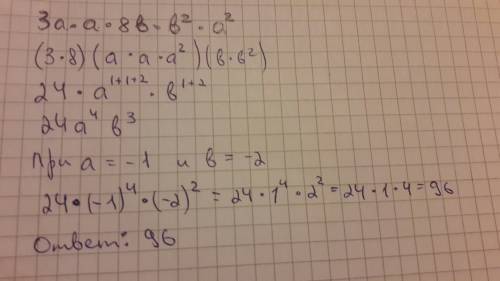 3а · а · 8в · в² · а²
(3 · 8) (а · а · а²) (в · в²)
24 · а¹⁺¹⁺² · в¹⁺²
24а⁴ в³
При а = -1 и в = -2
24 · (-1)⁴ · (-2)² = 24 · 1⁴ · 2² = 24 · 1 · 4 = 96
Ответ: 96